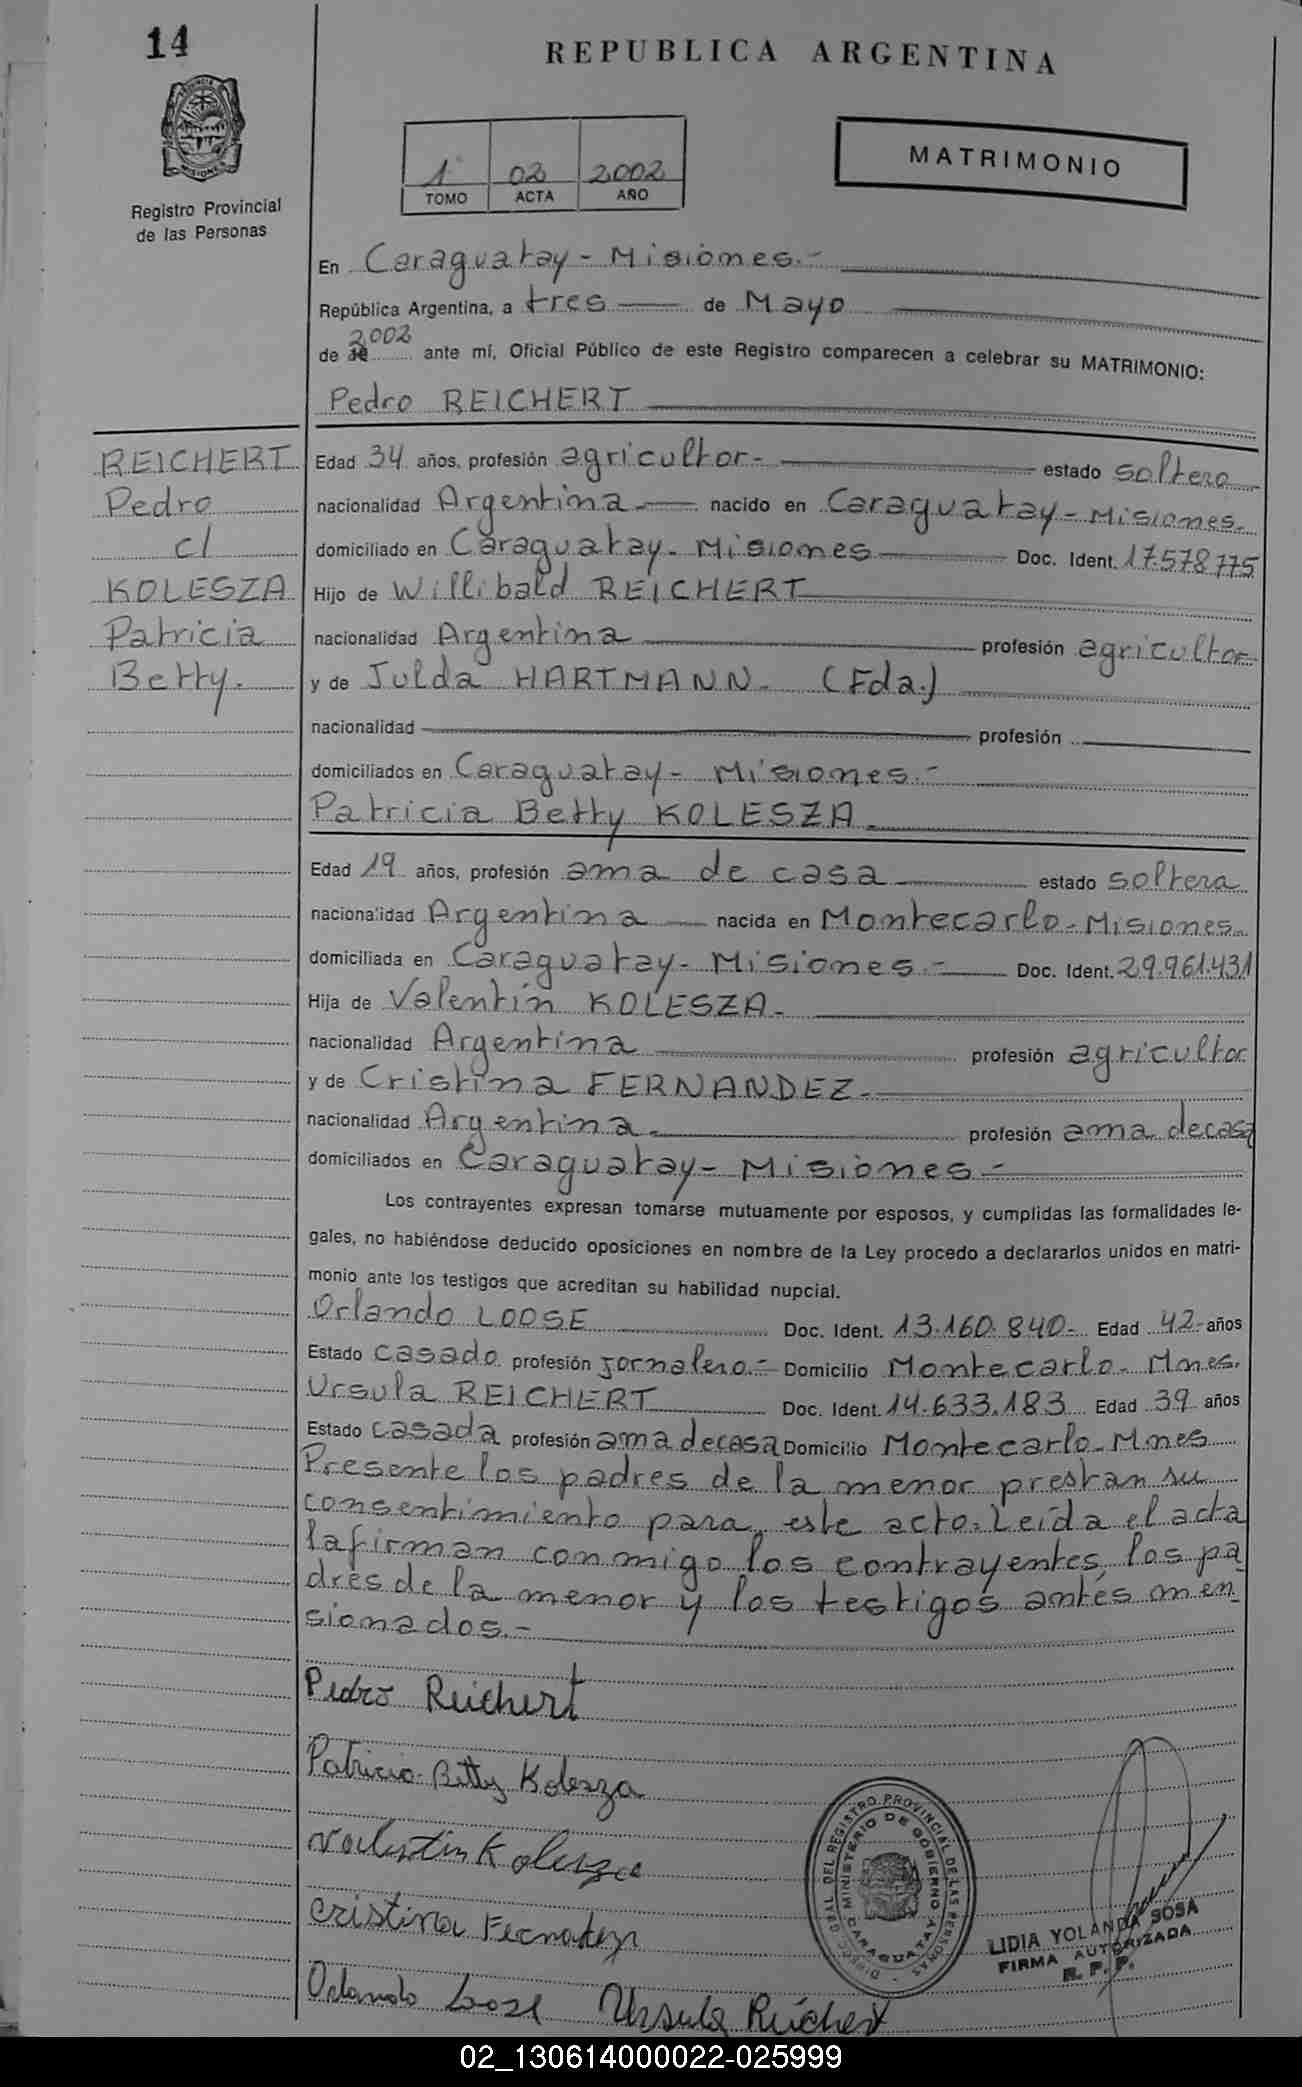 14
REPUBLICA ARGENTINA
MISIONES
Registro Provincial
de las Personas
1 02 2002
TOMO ACTA AÑO
MATRIMONIO
En Caraguatay - Misiones.-
República Argentina, a tres de Mayo
de 2002 ante mí, Oficial Público de este Registro comparecen a celebrar su MATRIMONIO:
Pedro REICHERT
REICHERT
Pedro
c/
KOLESZA
Patricia
Betty.
Edad 34 años, profesión agricultor- estado soltero
nacionalidad Argentina.- nacido en Caraguatay - Misiones.
domiciliado en Caraguatay- Misiones Doc. Ident. 17.578.775
Hijo de Willibald REICHERT
nacionalidad Argentina profesión agricultor
y de Julda HARTMANN. (Fda.)
nacionalidad profesión
domiciliados en Caraguatay - Misiones.-
Patricia Betty KOLESZA.
Edad 19 años, profesión ama de casa estado soltera
nacionalidad Argentina nacida en Montecarlo - Misiones.
domiciliada en Caraguatay- Misiones.- Doc. Ident. 29.961.431
Hija de Valentín KOLESZA.
nacionalidad Argentina profesión agricultor
y de Cristina FERNANDEZ.
nacionalidad Argentina. profesión ama decasa
domiciliados en Caraguatay - Misiones.-
Los contrayentes expresan tomarse mutuamente por esposos, y cumplidas las formalidades le-
gales, no habiéndose deducido oposiciones en nombre de la Ley procedo a declararlos unidos en matri-
monio ante los testigos que acreditan su habilidad nupcial.
Orlando LOOSE Doc. Ident. 13.160.840- Edad 42 años
Estado casado profesión jornalero.- Domicilio Montecarlo - Mnes.
Ursula REICHERT Doc. Ident. 14.633.183 Edad 39 años
Estado casada profesión ama decasa Domicilio Montecarlo - Mnes
Presente los padres de la menor prestan su
consentimiento para este acto. Leída el acta
lafirman conmigo los contrayentes, los pa
dres de la menor y los testigos antes men
sionados.-
Pedro Reichert
Patricia Betty Kolesza
Valentin Kolesza
Cristina Fernandez
Orlando Loose Ursula Reichert
DIREC. GRAL. DEL REGISTRO PROVINCIAL DE LAS PERSONAS
MINISTERIO DE GOBIERNO
CARAGUATAY
LIDIA YOLANDA SOSA
FIRMA AUTORIZADA
R. P. P.
02_130614000022-025999